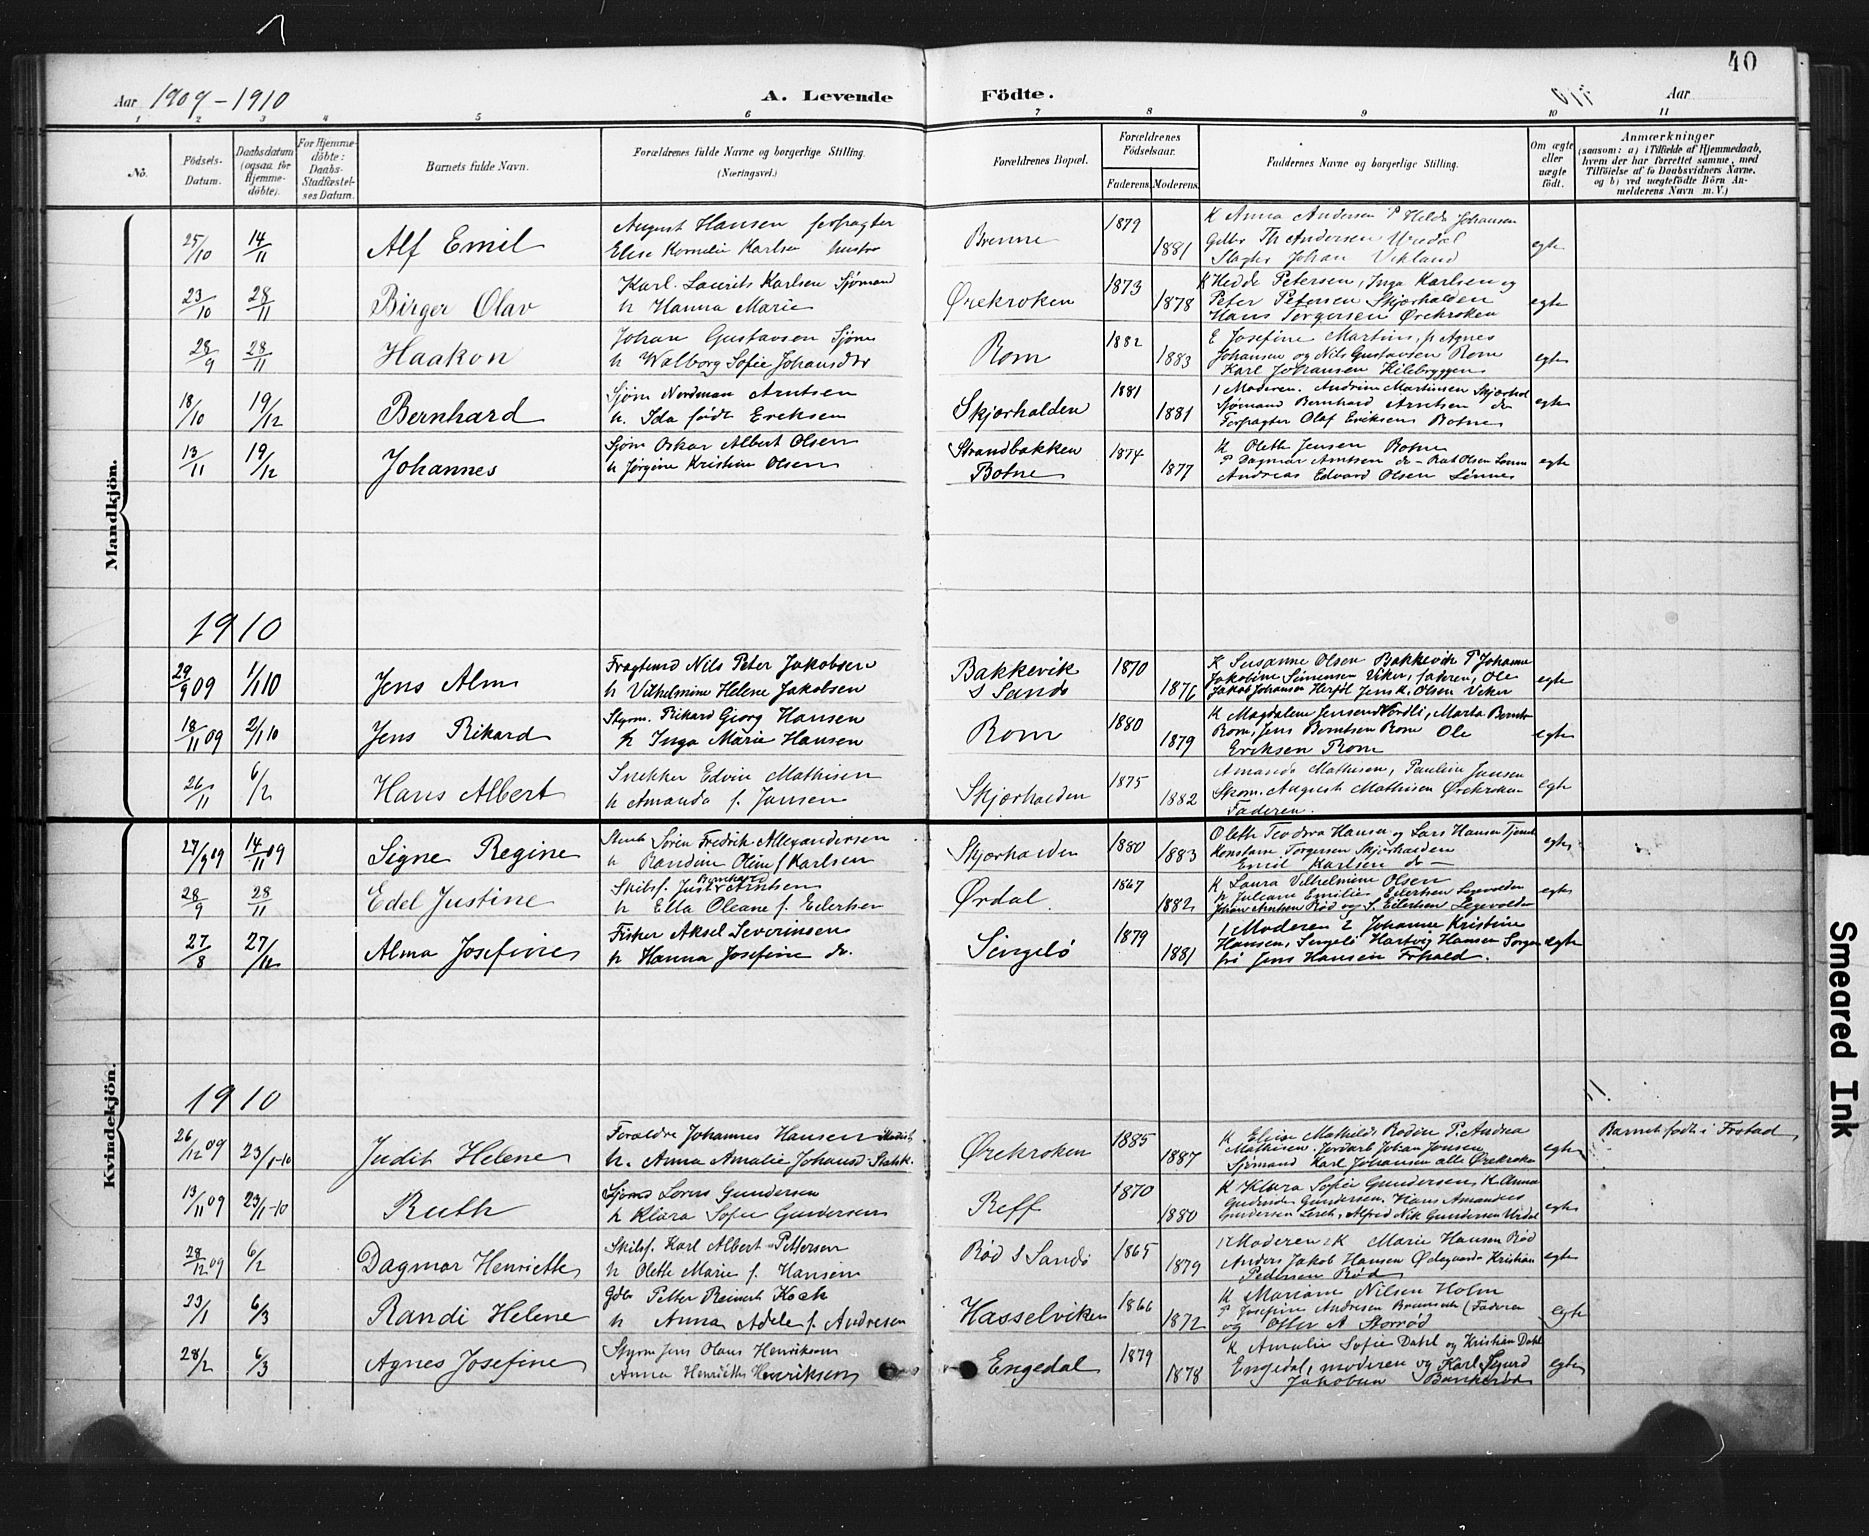 40
Aar 1909-1910 A. Levende Födte. Aar
1 2 3 4 5 6 7 8 9 10 11
No.
Födsels-Datum.
Daabsdatum (ogsaa for Hjemmedöbte).
For Hjemmedöbte: Daabs-Stadfæstelses Datum.
Barnets fulde Navn.
Forældrenes fulde Navne og borgerlige Stilling.
(Næringsvei.)
Forældrenes Bopæl.
Forældrenes Födselsaar.
Faderens. Moderens.
Faddernes Navne og borgerlige Stilling.
Om ægte eller uægte födt.
Anmærkninger
(saasom: a) i Tilfælde af Hjemmedaab, hvem der har forrettet samme, med Tilföielse af to Daabsvidners Navne, og b) ved uægtefödte Börn Anmelderens Navn m. V.)
Mandkjön.
25/10 14/11 Alf Emil August Hansen forpagter Brenne 1879 K Anna Andersen P Helda Johansen
Elise Kornelie Karlsen hustru 1881 Gdbr Th Andersen Uredal egte
Slagter Johan Vikland
23/10 28/11 Birger Olav Karl Laurits Karlsen Sjømand Ørekroken 1873 K Hedde Petersen, Inga Karlsen og
h Hanna Marie 1878 Peter Petersen Skjærhalden egte
Hans Torgersen Ørekroken
28/9 28/11 Haakon Johan Gustavsen Sjøm Rom 1882 E Josefine Martins, p Agnes
h Walborg Sofie Johansdtr 1883 Johansen og Nils Gustavsen Rom egte
Karl Johansen Kilebryggen
18/10 19/12 Bernhard Sjøm Nordman Arntsen Skjærhalden 1881 1 Moderen. Andrine Martinsen Skjærhal
h. Ida født Eriksen 1881 Sjømand Bernhard Arntsen do egte
Forpagter Olaf Eriksens Botne
13/11 19/12 Johannes Sjøm Oskar Albert Olsen Strandbakken 1874 K Oleth Jensen Botne
h Jørgine Kristine Olsen Botne 1877 P Dagmar Arntsen do egte
Andreas Edvard Olsen Lønnes
1910
29/9 09 1/1 10 Jens Alm Fragtmd Nils Peter Jakobsen Bakkevik 1870 K Susanne Olsen Bakkevik P Johanne
h Vilhelmine Helene Jakobsen S Sandø 1876 Jakobine Simensen Viker, faderen, Ole egte
Jakob Johansen Herføl Jens K. Olsen Viker
18/11 09 2/1 10 Jens Rikard Styrm. Rikard Georg Hansen Rom 1880 K Magdalene Jensen Nordli, Marta Berntsen
h Inga Marie Hansen 1879 Rom, Jens Berntsen Rom Ole egte
Eriksen Rom
26/11 6/2 Hans Albert Snekker Edvin Mathisen Skjærhalden 1875 Amanda Mathisen, Pauline Jansen
h Amanda f. Jansen 1882 Skom. August Mathisen Ørekroken egte
Faderen.
Kvindekjön.
27/9 09 14/11 09 Signe Regine Søren Fredrik Allexandersen Skjærhalden 1880 Oleth Teodora Hansen og Lars Hansen
h Randine Olin f Karlsen 1883 Konstanse Torgersen Skjærhalden egte
Emil Karlsen do
28/9 28/11 Edel Justine Skilsf. Just Bernhard Arntsen Ørdal 1867 K Laura Vilhelmine Olsen
h Ella Oleane f. Eilertsen 1882 h Juliane Emilie Eilertsen Løgevolden egte
Johan Arntsen Rød og S. Eilertsen Løgevolden
27/8 27/12 Alma Josefine Fisker Aksel Severinsen Singelø 1879 1 Moderen 2 Johanne Kristine
h Hanna Josefine do. 1881 Hansen, Singelø Hartvig Hansen egte
Jens Hansen Frhald.
1910
26/12 09 23/1-10 Judit Helene Forældre Johannes Hansen Ørekroken 1885 K Elise Mathilde P. Andrea Barnet født i Frstad
h. Anna Amalie Johansd 1887 Mathisen. Jordarb Johan Jensen egte
Sjømand Karl Johansen alle Ørekroken
13/11 09 23/1-10 Ruth Sjømd Lorens Gundersen Reff 1870 K Klara Sofie Gundersen, K Anna
h Klara Sofie Gundersen 1880 Gundersen. Hans Amandus egte
Gundersen Lerch, Alfred Nik Gundersen Uredal
28/12 09 6/2 Dagmar Henriette Skilsf. Karl Albert Pettersen Rød S Sandø 1865 1 Moderen 2 K Marie Hansen Rød
h Olette Marie f. Hansen 1879 Anders Jakob Hansen Ødegaard Kristian egte
Pedersen Rød
23/1 6/3 Randi Helene Gdbr Petter Reinert Kock Hasselviken 1866 K Mariane Nilsen Holm
h Anna Adele f. Andresen 1872 P Josefine Andresen (Fadern egte
og Otter A Storrød
28/2 6/3 Agnes Josefine Styrm Jens Olaus Henriksen Engedal 1879 K Amalie Sofie Dahl og Kristian Dahl
Anna Henriette Henriksen 1878 Engedal, moderen og Karl Sigurd egte
Jakobsen Bankerød
Smeared Ink